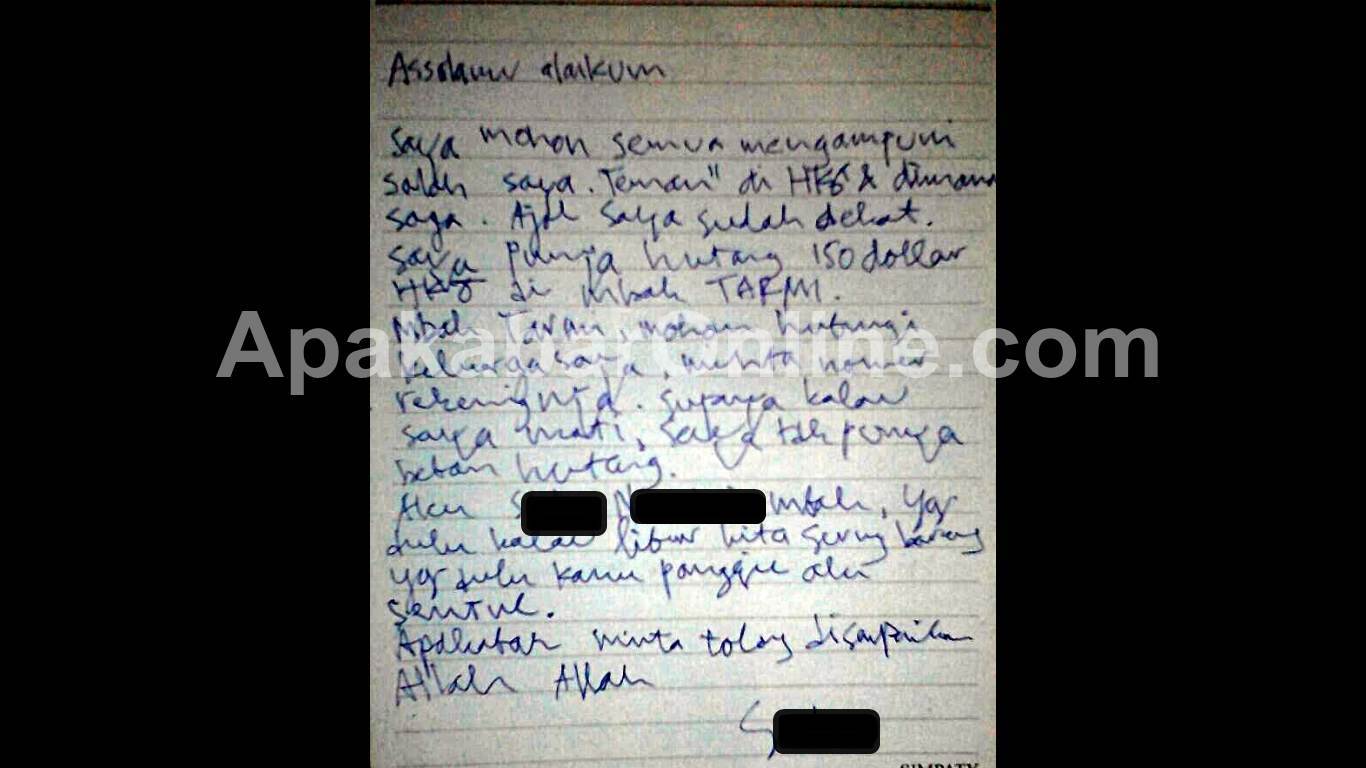 Assalamu alaikum
Saya mohon semua mengampuni
salah saya. Teman" di HKG & dimana
saja. Ajal saya sudah dekat.
saya punya hutang 150 dollar
HKG di mbah TARMI.
Mbah Tarmi, mohon hubungi
keluarga saya, minta nomer
rekeningnya. supaya kalau
saya mati, saya tak punya
beban hutang.
ApakabarOnline.com
Aku S mbah, yg
dulu kalau libur kita sering bareng
yg dulu kamu panggil aku
sentul.
Apakabar minta tolong disampaikan
Allah Allah
S
SIMPATY